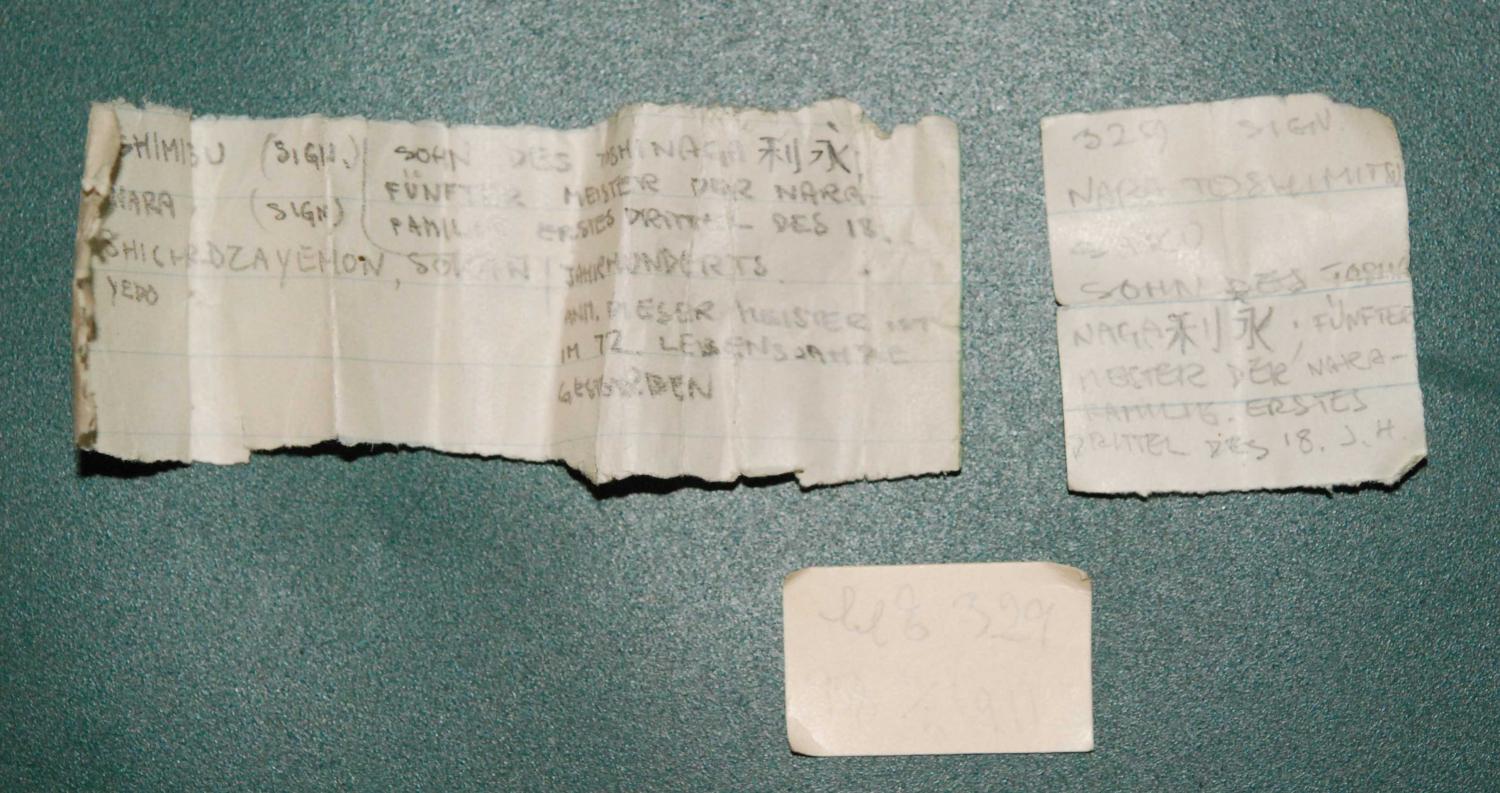 SHIMISU (SIGN.) SOHN DES TOSHINAGA 利永,
NARA (SIGN) FÜNFTER MEISTER DER NARA-
FAMILIE ERSTES DRITTEL DES 18.
SHICHIRDZAYEMON, JAHRHUNDERTS
YEDO
ANM. DIESER MEISTER IST
IM 72. LEBENSJAHRE
GESTORBEN
329 SIGN
NARA TOSHIMITSU
SOHN DES TOSHI
NAGA 利永, FÜNFTER
MEISTER DER NARA-
FAMILIE. ERSTES
DRITTEL DES 18. J.H.
329